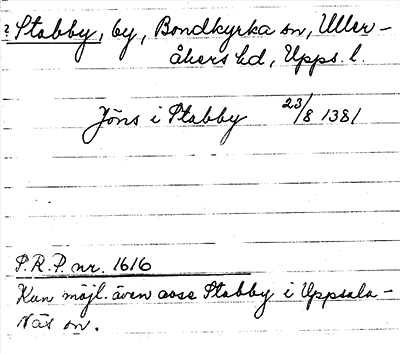 ? Stabby, by, Bondkyrka sn, Uller-
åkers hd, Upps. l.
Jöns i Stabby 23/8 1381
P.R.P. nr. 1616
Kan möjl. även avse Stabby i Uppsala-
Näs sn.